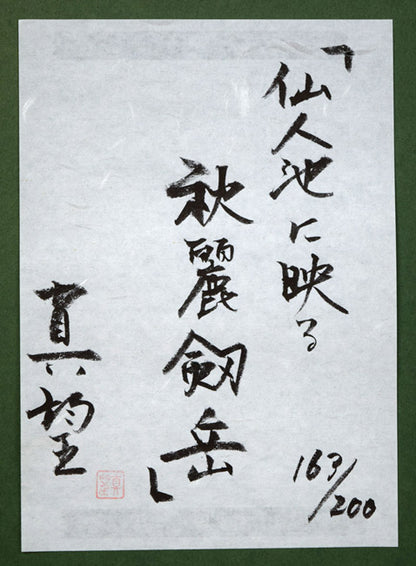 「仙人池に映る
秋麗劔岳」
真望
163/200